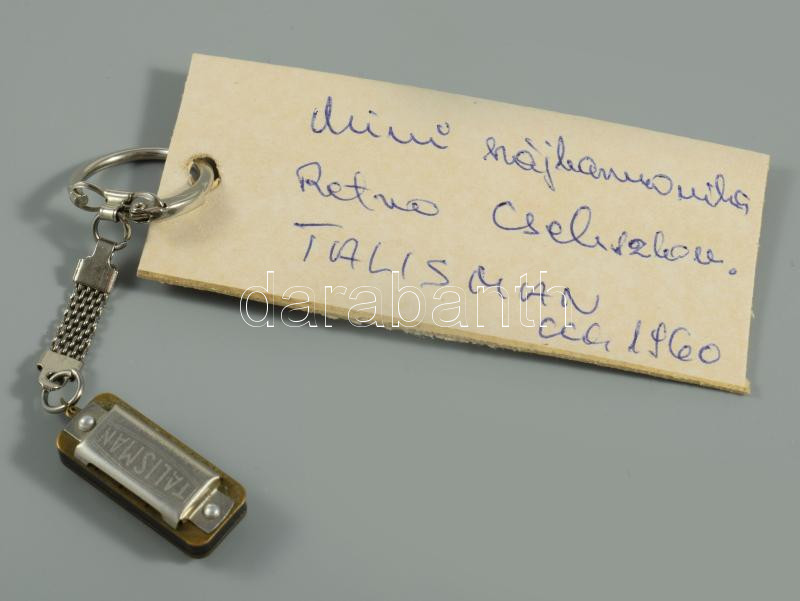 Mini szájharmonika
Retro Csehszlov.
TALISMAN
cca. 1960
darabanth
TALISMAN